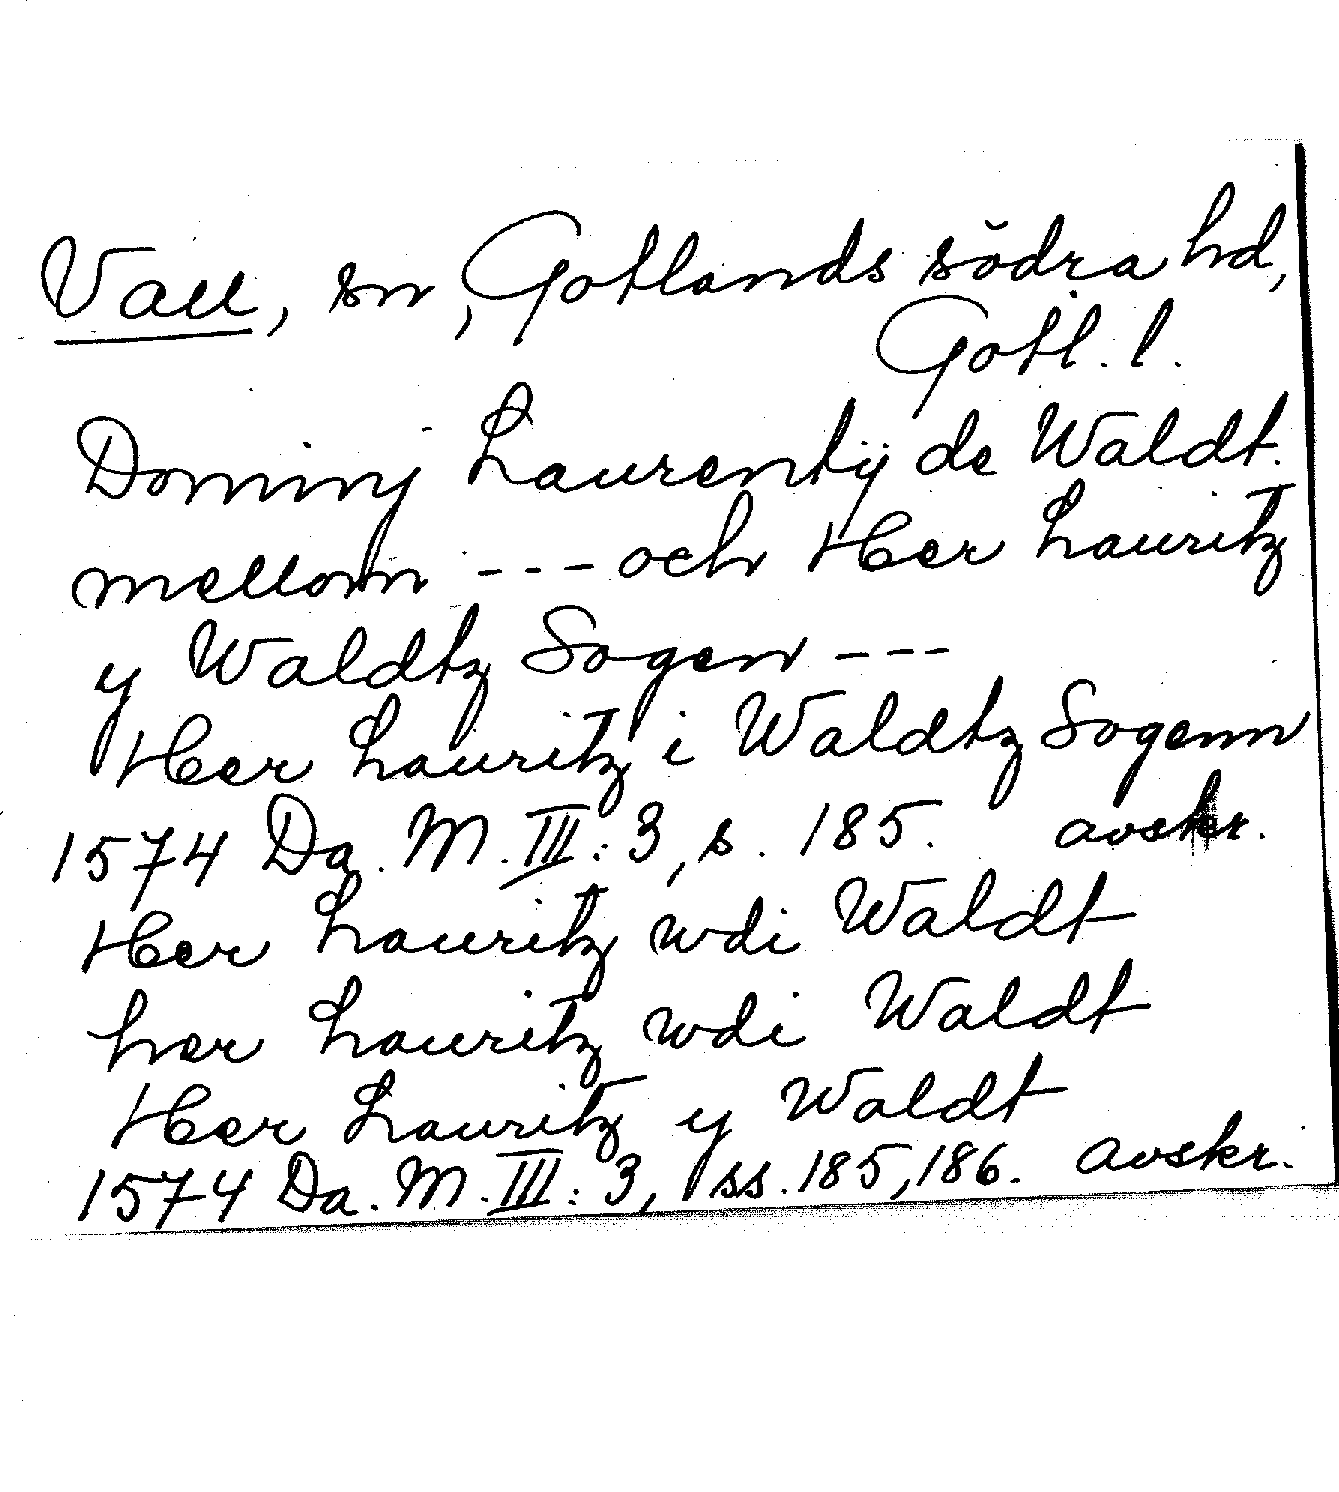 Vall, sn, Gotlands södra hd,
Gotl. l.
Dominj Laurentij de Waldt.
mellom --- och Her Lauritz
y Waldtz Sogen ---
Her Lauritz i Waldtz Sogenn
1574 Da. M. III: 3, s. 185. avskr.
Her Lauritz wdi Waldt
her Lauritz wdi Waldt
Her Lauritz y Waldt
1574 Da. M. III: 3, ss. 185, 186. avskr.